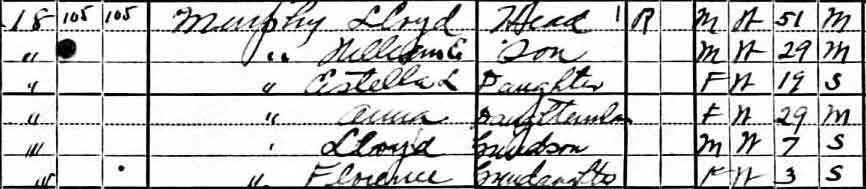 18 105 105 Murphy Lloyd Head 1 R M W 51 M
" " William E Son M W 29 M
" " Estella L Daughter F W 19 S
" " Anna Daughterinlaw F W 29 M
" " Lloyd Grandson M W 7 S
" " Florence F W 3 S